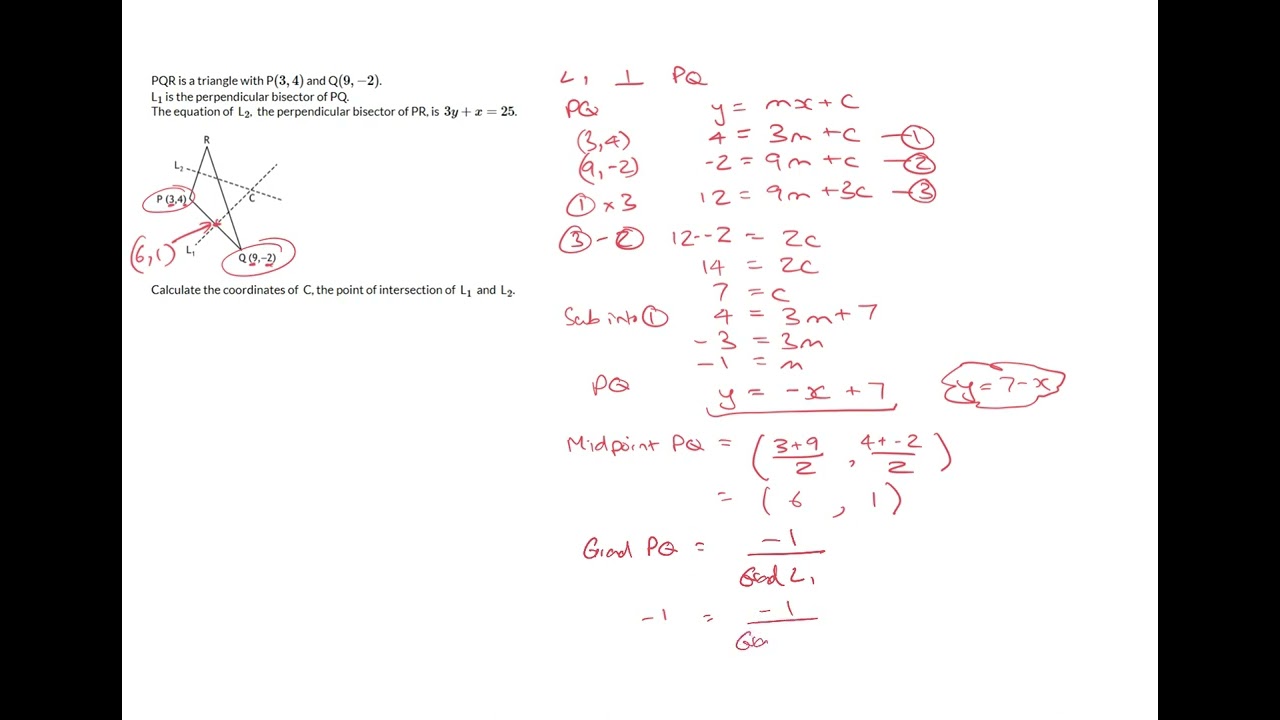 PQR is a triangle with P(3, 4) and Q(9, −2).
L₁ is the perpendicular bisector of PQ.
The equation of L₂, the perpendicular bisector of PR, is 3y + x = 25.
R
L₂
P (3,4)
C
(6,1)
L₁
Q (9,-2)
Calculate the coordinates of C, the point of intersection of L₁ and L₂.
L₁ ⊥ PQ
PQ y = mx + C
(3,4) 4 = 3m + C —①
(9,-2) -2 = 9m + C —②
① × 3 12 = 9m + 3C —③
③ - ② 12--2 = 2C
14 = 2C
7 = C
Sub into ① 4 = 3m + 7
-3 = 3m
-1 = m
PQ y = -x + 7 y = 7 - x
Midpoint PQ = (3+9/2 , 4+-2/2)
= (6 , 1)
Grad PQ = -1/Grad L₁
-1 = -1/Gra